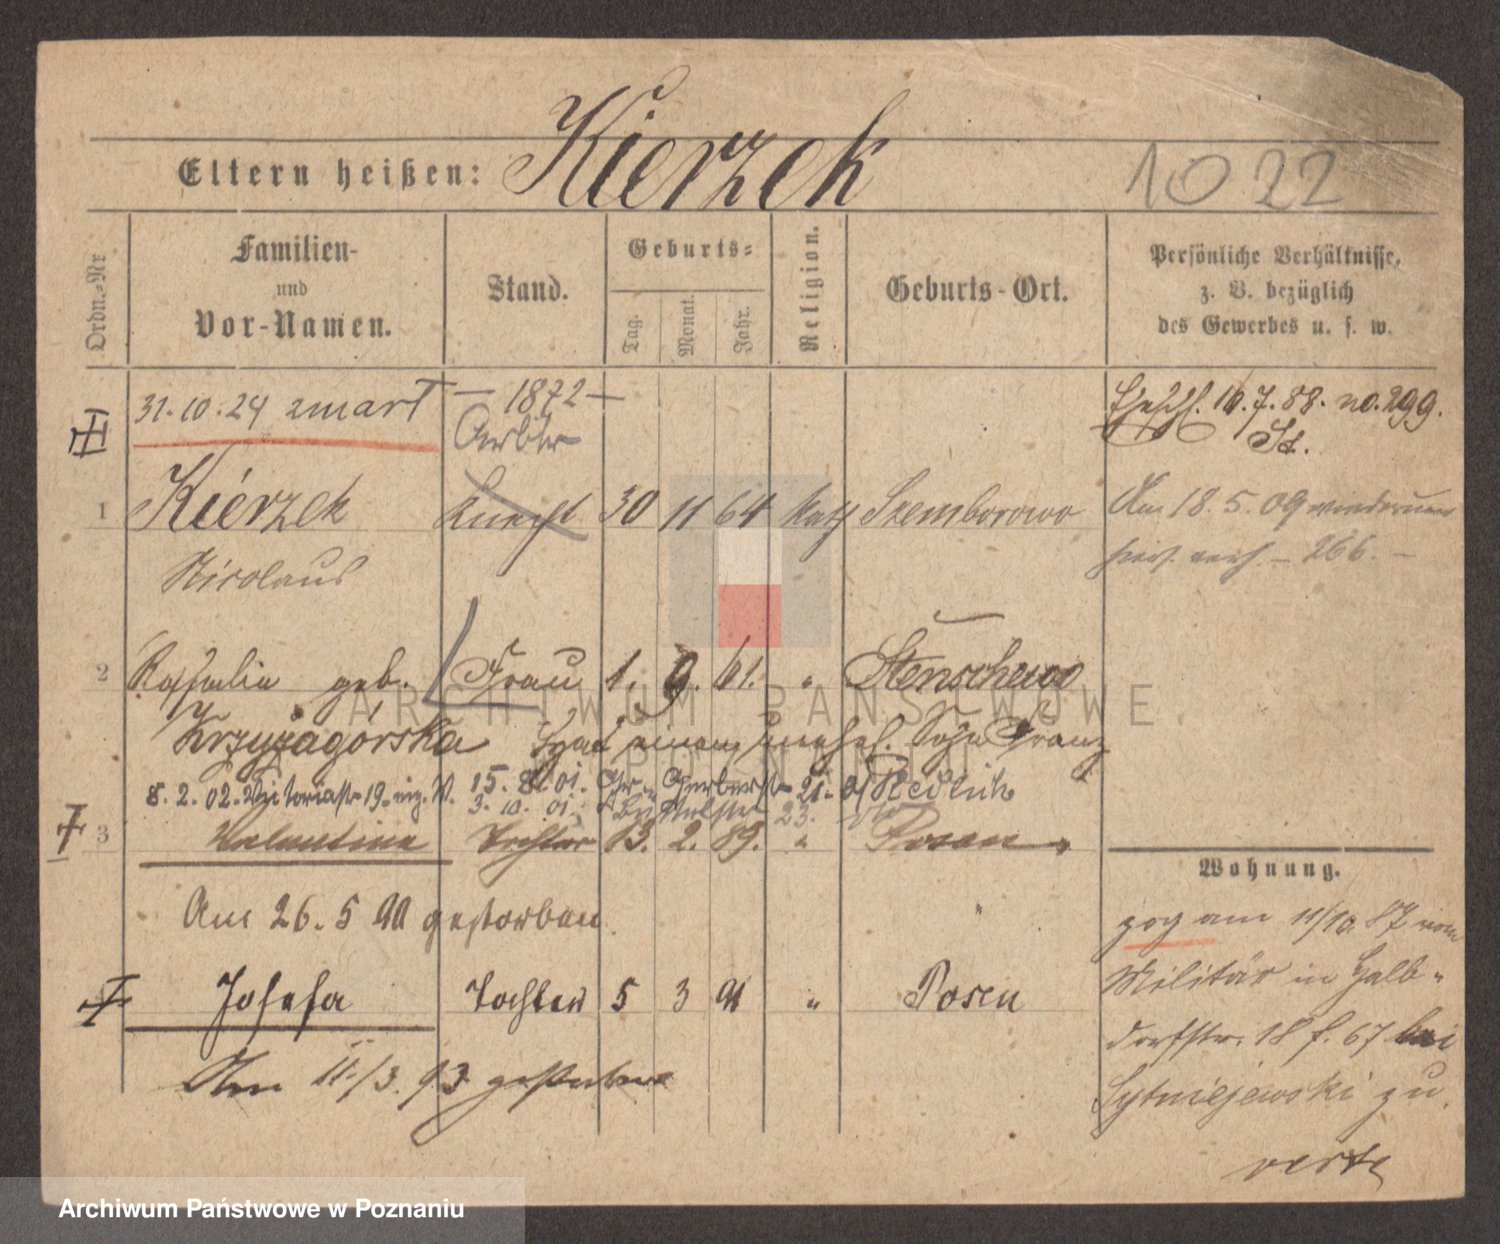 Kierzek
Eltern heißen:
1022
Ordn.-Nr
Familien-
und
Vor-Namen.
Stand.
Geburts-
Tag.
Monat.
Jahr.
Religion.
Geburts-Ort.
Persönliche Verhältnisse,
z. B. bezüglich
des Gewerbes u. s. w.
31.10.24 zmarł
1872
Arbtr
Eheschl. 10.7.88. no. 299.
St.
1 Kierzek Knecht 30 11 64 kath Szemborowo
Nicolaus
Am 18.5.09 wiederum
hier. - 266. -
2 Rosalia geb. Frau 1. 9. 61. " Stenschewo
Krzyżagórska
einen unehel. Sohn Franz
8.2.02. Victoriastr 19. 15.8.01. Gr. Gerberstr 21. Redlich
3.10.01. 23.
3 Valentine Tochter 13. 2. 89. " Posen
Wohnung.
Am 26.5 90 gestorben.
Josefa Tochter 5 3 91 " Posen
Am 11./3. 93 gestorben
zog am 11/10.87 vom
Militär in Halb-
dorfstr. 18 f. 67 bei
Sytniejewski zu.
verte
ARCHIWUM PAŃSTWOWE
W POZNANIU
Archiwum Państwowe w Poznaniu